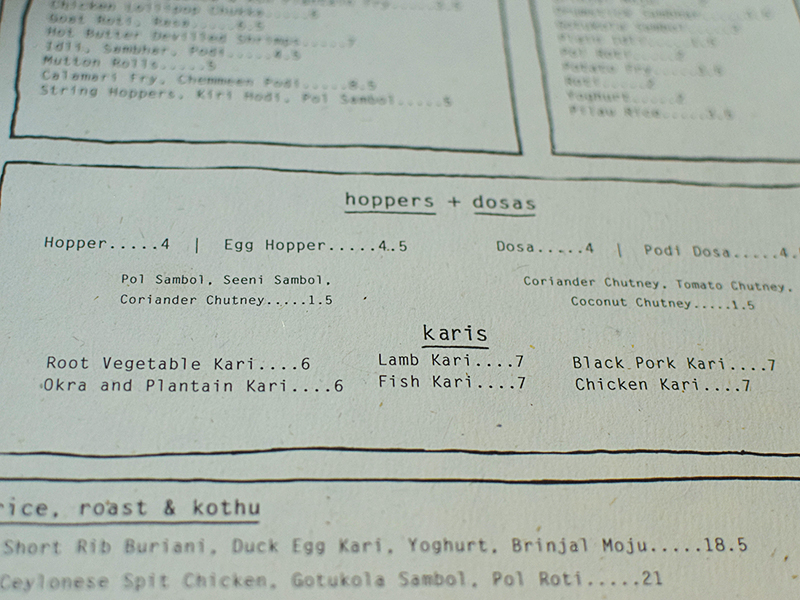 Chicken Lollipop Chukka.....6
Goat Roti, Rasa.....6.5
Hot Butter Devilled Shrimps.....7
Idli, Sambhar, Podi.....4.5
Mutton Rolls.....5
Calamari Fry, Chemmeen Podi.....8.5
String Hoppers, Kiri Hodi, Pol Sambol.....5
Potato Fry
Yoghurt
Pilau Rice
hoppers + dosas
Hopper.....4 | Egg Hopper.....4.5
Dosa.....4 | Podi Dosa.....4.
Pol Sambol, Seeni Sambol,
Coriander Chutney.....1.5
Coriander Chutney, Tomato Chutney,
Coconut Chutney.....1.5
karis
Root Vegetable Kari....6
Okra and Plantain Kari....6
Lamb Kari....7
Fish Kari....7
Black Pork Kari....7
Chicken Kari....7
rice, roast & kothu
Short Rib Buriani, Duck Egg Kari, Yoghurt, Brinjal Moju.....18.5
Ceylonese Spit Chicken, Gotukola Sambol, Pol Roti.....21